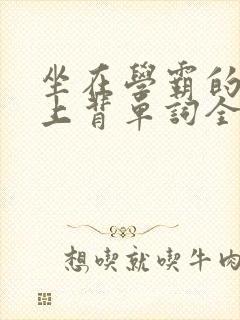 坐在學霸的
上背單詞全
想喫就喫牛肉